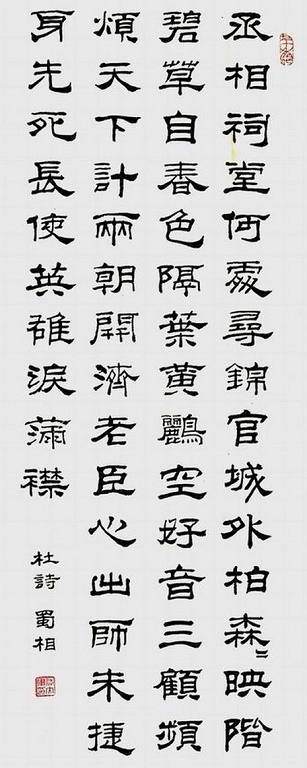 丞相祠堂何處尋錦官城外柏森〻映階
碧草自春色隔葉黃鸝空好音三顧頻
煩天下計兩朝開濟老臣心出師未捷
身先死長使英雄淚滿襟
杜詩 蜀相